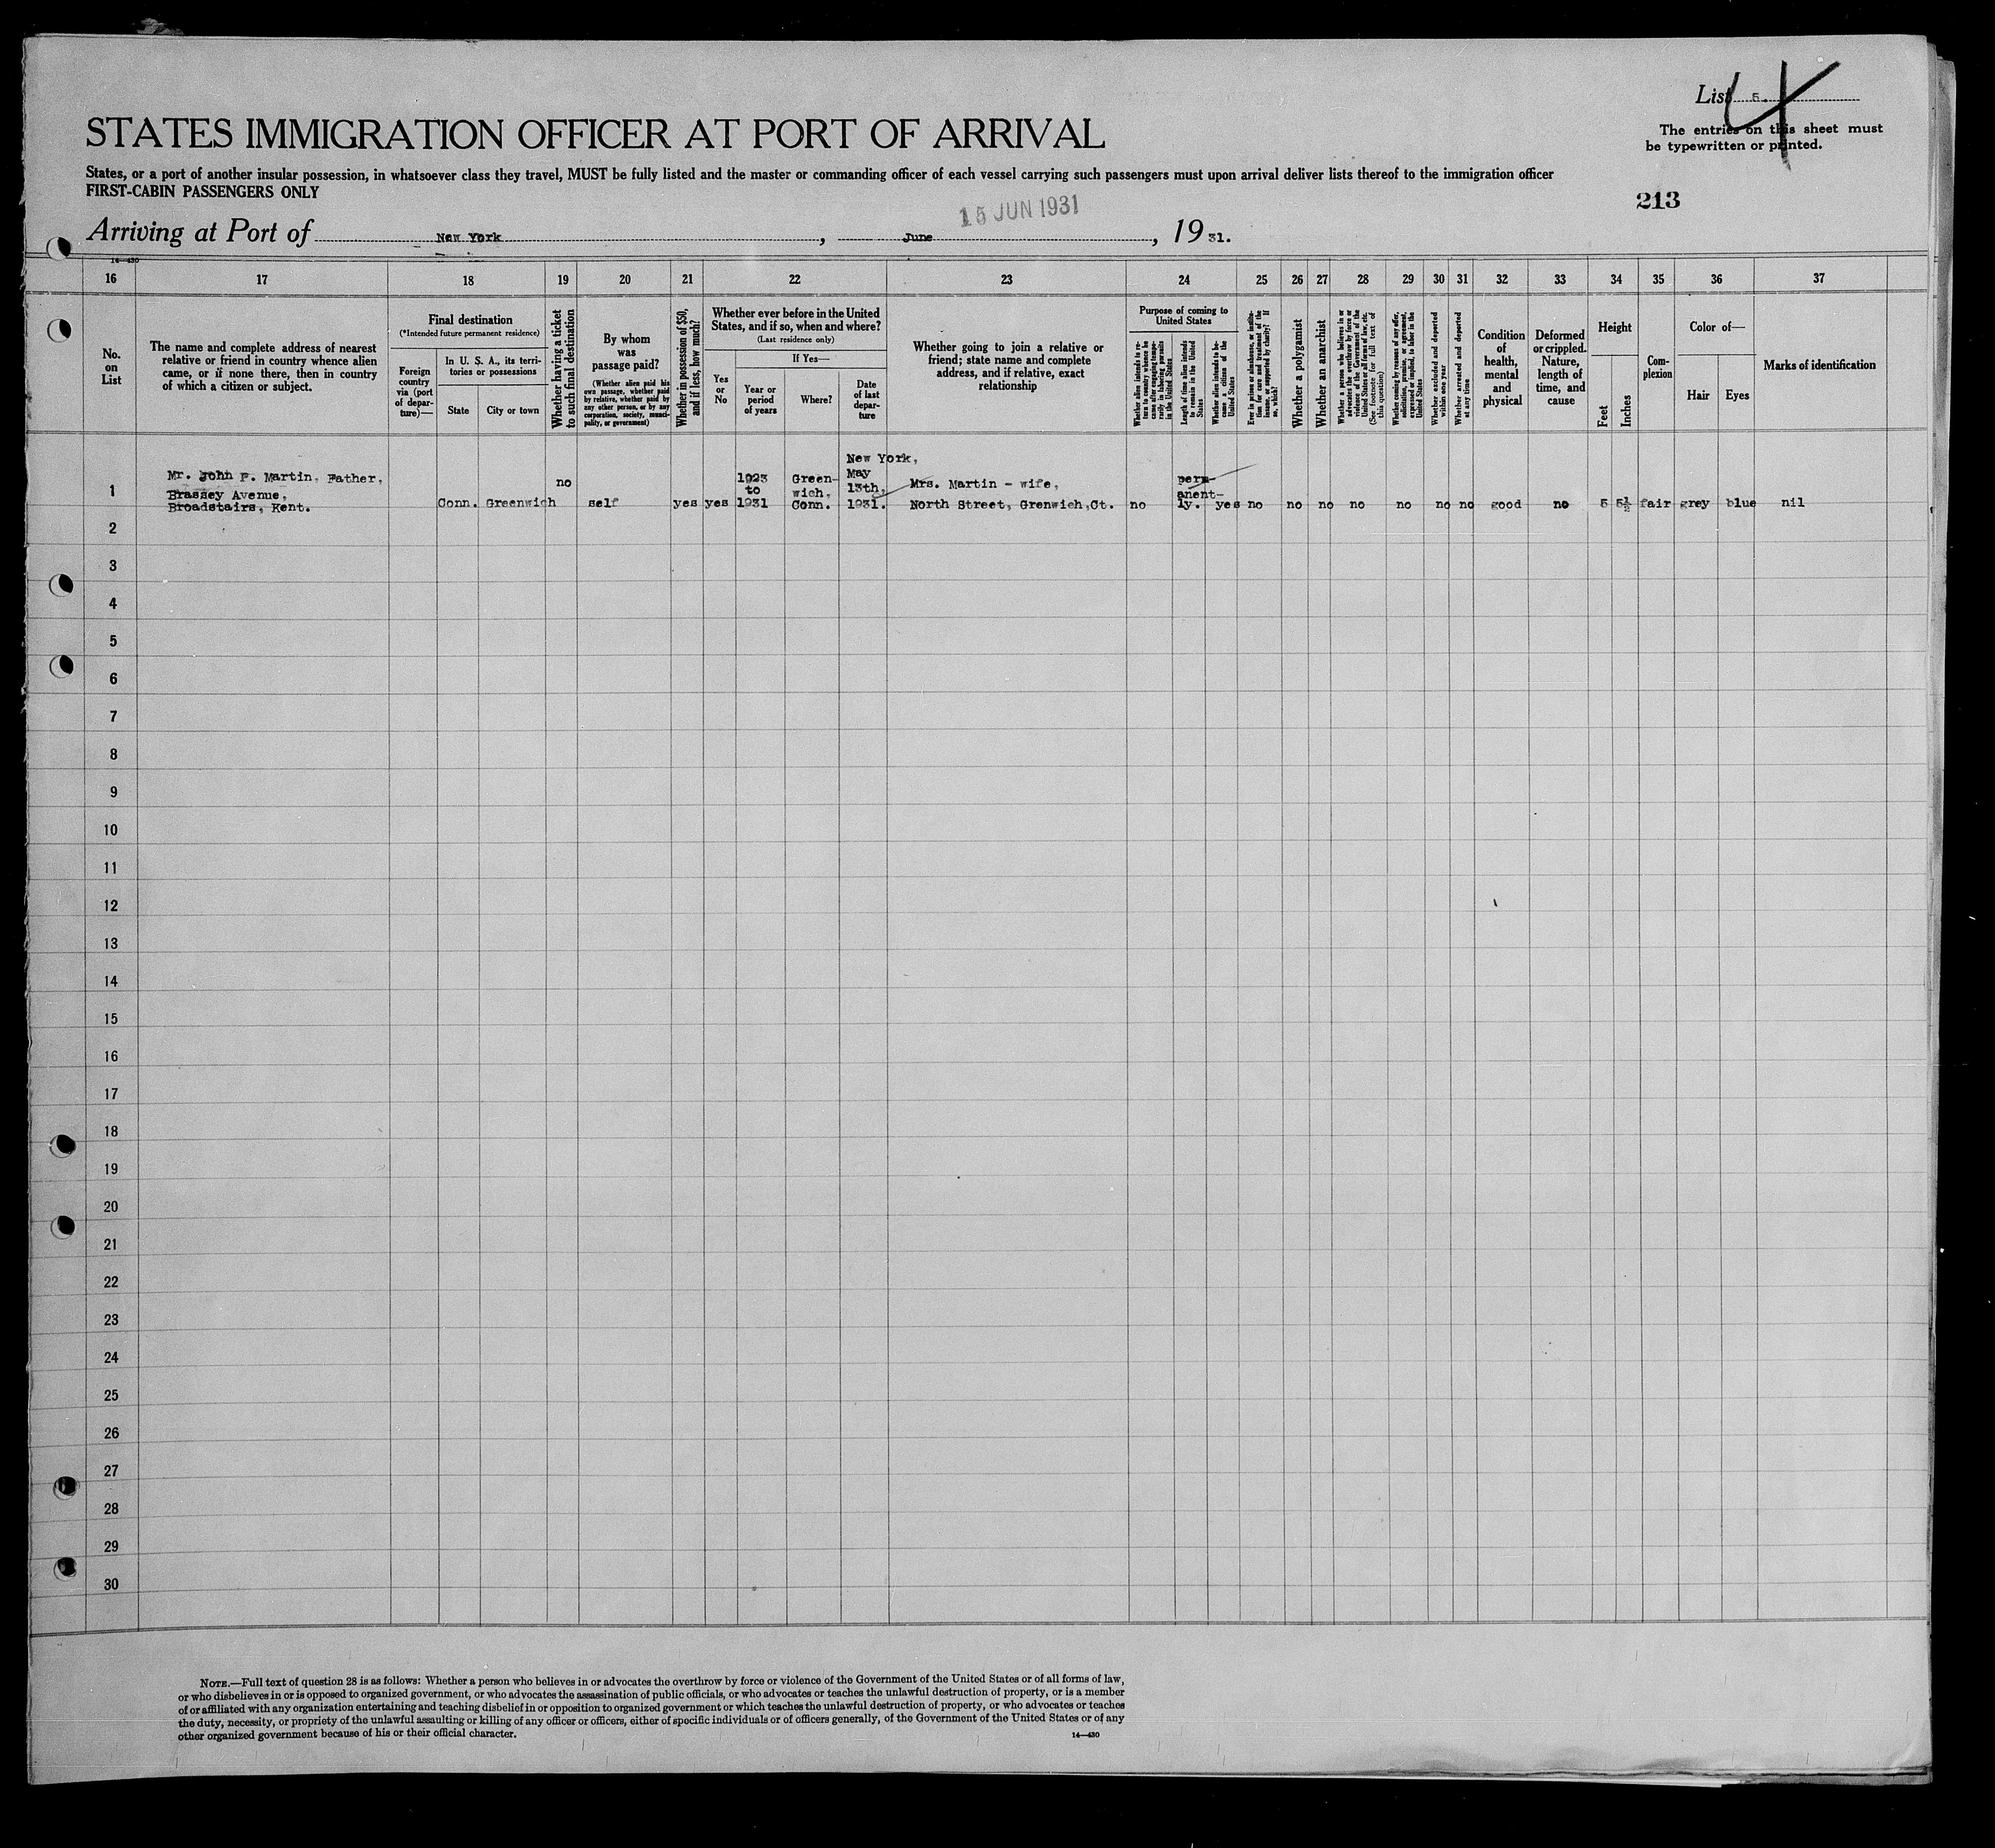 List 5.
4
STATES IMMIGRATION OFFICER AT PORT OF ARRIVAL
The entries on this sheet must
be typewritten or printed.
States, or a port of another insular possession, in whatsoever class they travel, MUST be fully listed and the master or commanding officer of each vessel carrying such passengers must upon arrival deliver lists thereof to the immigration officer
FIRST-CABIN PASSENGERS ONLY
213
15 JUN 1931
Arriving at Port of New York, June, 19 31.
14—430
16 17 18 19 20 21 22 23 24 25 26 27 28 29 30 31 32 33 34 35 36 37
No.
on
List
The name and complete address of nearest
relative or friend in country whence alien
came, or if none there, then in country
of which a citizen or subject.
Final destination
(*Intended future permanent residence)
Foreign
country
via (port
of depar-
ture)—
In U. S. A., its terri-
tories or possessions
State
City or town
Whether having a ticket
to such final destination
By whom
was
passage paid?
(Whether alien paid his
own passage, whether paid
by relative, whether paid by
any other person, or by any
corporation, society, munici-
pality, or government)
Whether in possession of $50,
and if less, how much?
Whether ever before in the United
States, and if so, when and where?
(Last residence only)
Yes
or
No
If Yes—
Year or
period
of years
Where?
Date
of last
depar-
ture
Whether going to join a relative or
friend; state name and complete
address, and if relative, exact
relationship
Purpose of coming to
United States
Whether alien intends to re-
turn to country whence he
came after engaging tempo-
rarily in laboring pursuits
in the United States
Length of time alien intends
to remain in the United
States
Whether alien intends to be-
come a citizen of the
United States
Ever in prison or almshouse, or institu-
tion for care and treatment of the
insane, or supported by charity? If
so, which?
Whether a polygamist
Whether an anarchist
Whether a person who believes in or
advocates the overthrow by force or
violence of the Government of the
United States or all forms of law, etc.
(See footnote for full text of
this question)
Whether coming by reasons of any offer,
solicitation, promise, or agreement,
expressed or implied, to labor in the
United States
Whether excluded and deported
within one year
Whether arrested and deported
at any time
Condition
of
health,
mental
and
physical
Deformed
or crippled.
Nature,
length of
time, and
cause
Height
Feet
Inches
Com-
plexion
Color of—
Hair
Eyes
Marks of identification
1
Mr. John F. Martin, Father,
Brassey Avenue,
Broadstairs, Kent.
Conn. Greenwich
no
self
yes
yes
1923
to
1931
Green-
wich,
Conn.
New York,
May
13th,
1931.
Mrs. Martin - wife,
North Street, Grenwich,Ct.
no
perm-
anent-
ly.
yes no no no no no no no good no 5 5½ fair grey blue nil
2
3
4
5
6
7
8
9
10
11
12
13
14
15
16
17
18
19
20
21
22
23
24
25
26
27
28
29
30
NOTE.—Full text of question 28 is as follows: Whether a person who believes in or advocates the overthrow by force or violence of the Government of the United States or of all forms of law,
or who disbelieves in or is opposed to organized government, or who advocates the assassination of public officials, or who advocates or teaches the unlawful destruction of property, or is a member
of or affiliated with any organization entertaining and teaching disbelief in or opposition to organized government or which teaches the unlawful destruction of property, or who advocates or teaches
the duty, necessity, or propriety of the unlawful assaulting or killing of any officer or officers, either of specific individuals or of officers generally, of the Government of the United States or of any
other organized government because of his or their official character.
14—430